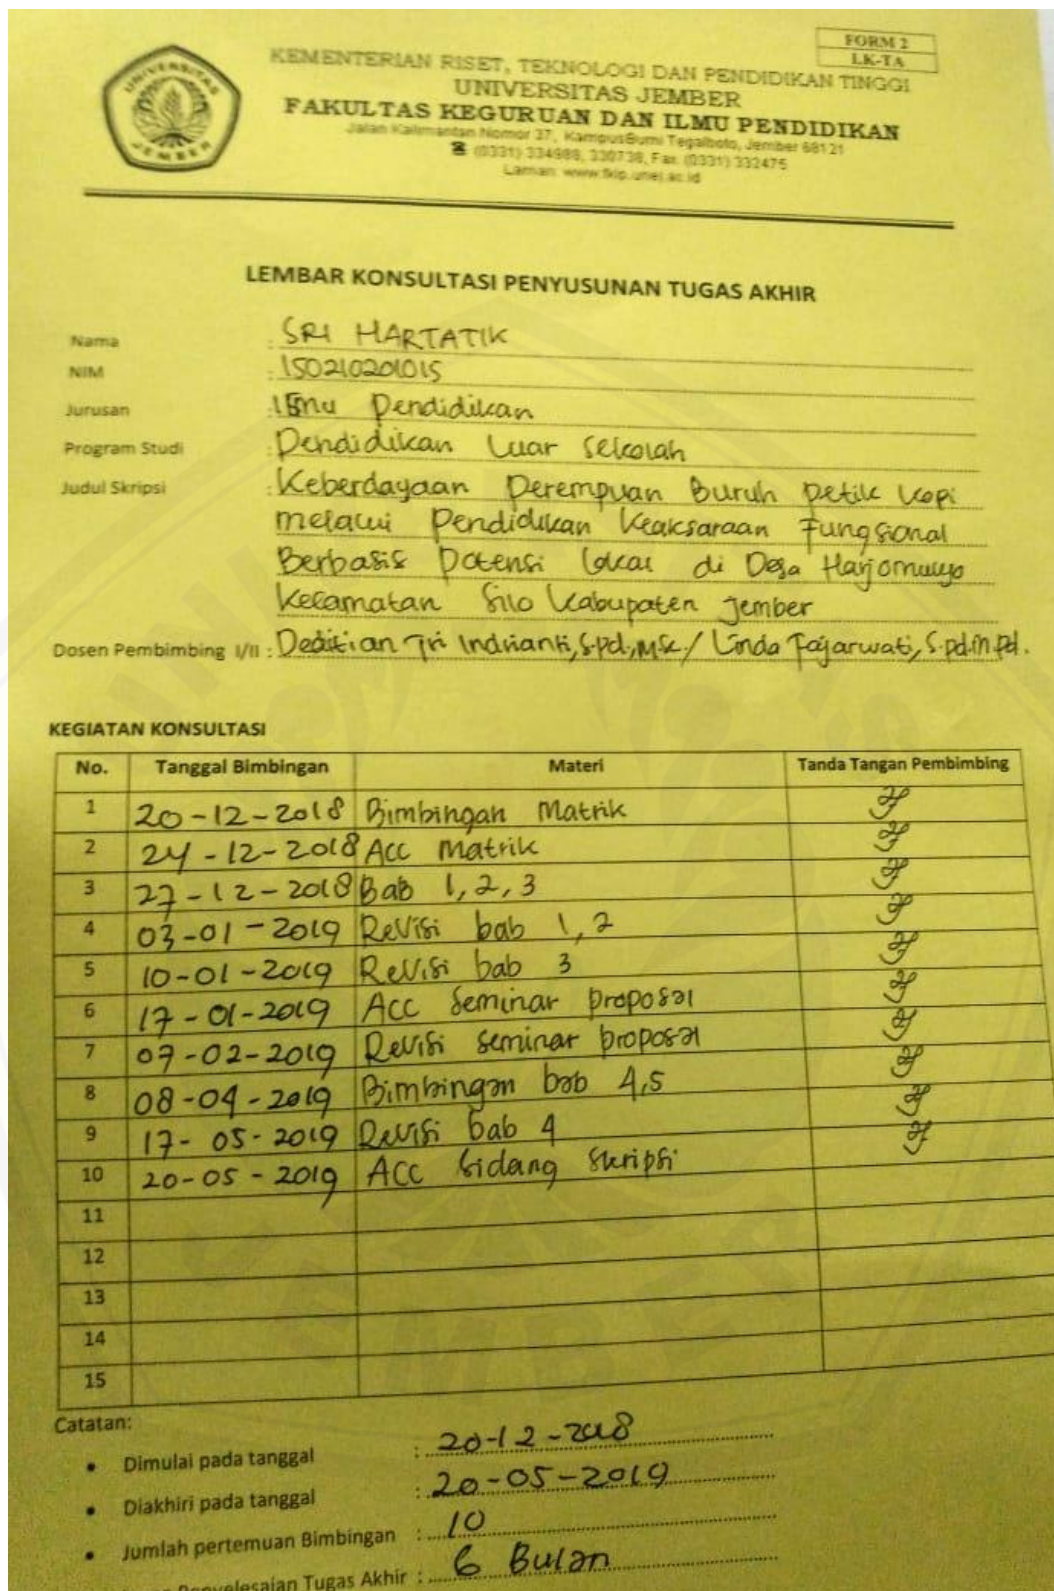 FORM 2
LK-TA
UNIVERSITAS
JEMBER
KEMENTERIAN RISET, TEKNOLOGI DAN PENDIDIKAN TINGGI
UNIVERSITAS JEMBER
FAKULTAS KEGURUAN DAN ILMU PENDIDIKAN
Jalan Kalimantan Nomor 37, KampusBumi Tegalboto, Jember 68121
☎ (0331) 334988, 330738, Fax. (0331) 332475
Laman: www.fkip.unej.ac.id
LEMBAR KONSULTASI PENYUSUNAN TUGAS AKHIR
Nama : SRI HARTATIK
NIM : 150210201015
Jurusan : Ilmu Pendidikan
Program Studi : Pendidikan Luar Sekolah
Judul Skripsi : Keberdayaan Perempuan Buruh Petik Kopi
melalui Pendidikan Keaksaraan Fungsional
Berbasis Potensi Lokal di Desa Harjomulyo
Kecamatan Silo Kabupaten Jember
Dosen Pembimbing I/II : Deditian Tri Indrianti, S.pd., M.Sc / Linda Fajarwati, S.pd. M.Pd.
KEGIATAN KONSULTASI
No. Tanggal Bimbingan Materi Tanda Tangan Pembimbing
1 20-12-2018 Bimbingan Matrik
2 24-12-2018 Acc Matrik
3 27-12-2018 Bab 1, 2, 3
4 03-01-2019 Revisi bab 1, 2
5 10-01-2019 Revisi bab 3
6 17-01-2019 Acc Seminar proposal
7 07-02-2019 Revisi seminar proposal
8 08-04-2019 Bimbingan bab 4,5
9 17-05-2019 Revisi bab 4
10 20-05-2019 ACC Sidang Skripsi
11
12
13
14
15
Catatan:
• Dimulai pada tanggal : 20-12-2018
• Diakhiri pada tanggal : 20-05-2019
• Jumlah pertemuan Bimbingan : 10
Penyelesaian Tugas Akhir : 6 Bulan